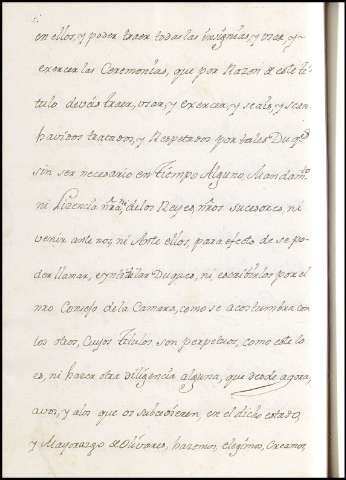 en ellos, y poder traer todas las insignias, y usar, y
exercer las Ceremonias, que por Razon de este ti-
tulo deváis traer, usar, y exercer, y seáis, y sean
havidos tratados, y Respetados por tales Duqs
sin ser necesario en Tiempo Alguno, Mandamto
ni Lizencia nra, ni de los Reyes, nros sucesores, ni
venir ante nos, ni Ante ellos, para efecto de se po-
der llamar, e yntitular Duques, ni escribirlos por el
nro Consejo de la Camara, como se acostumbra con
los otros, Cuyos Titulos son perpetuos, como este lo
es, ni hacer otra diligencia alguna, que desde agora,
a vos, y a los que os subcedieren, en el dicho estado,
y Mayorazgo de Olivares, hazemos, elegimos, Creamos,